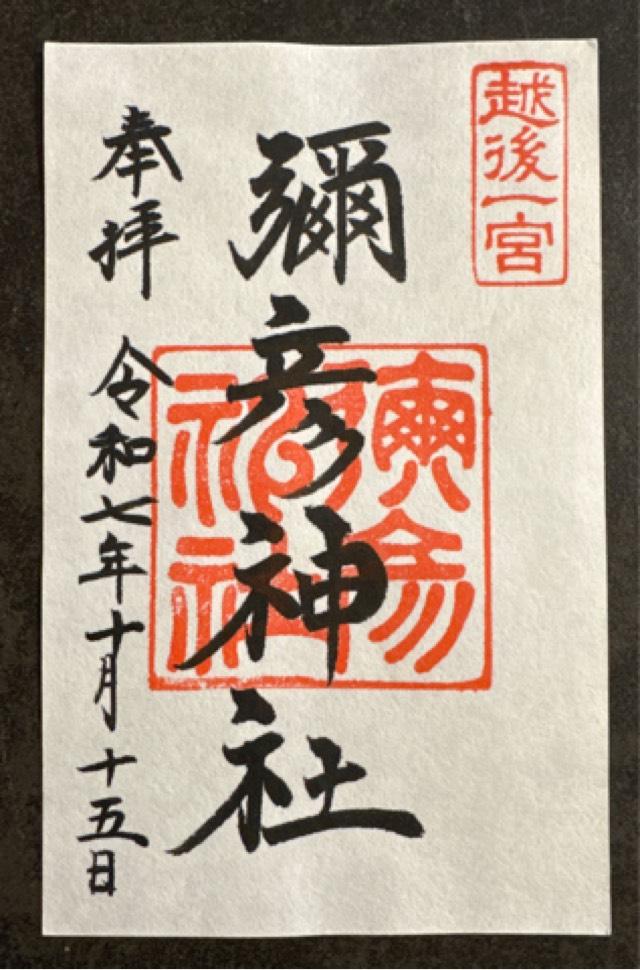 越後一宮
彌彦神社
奉拝
令和七年十月十五日